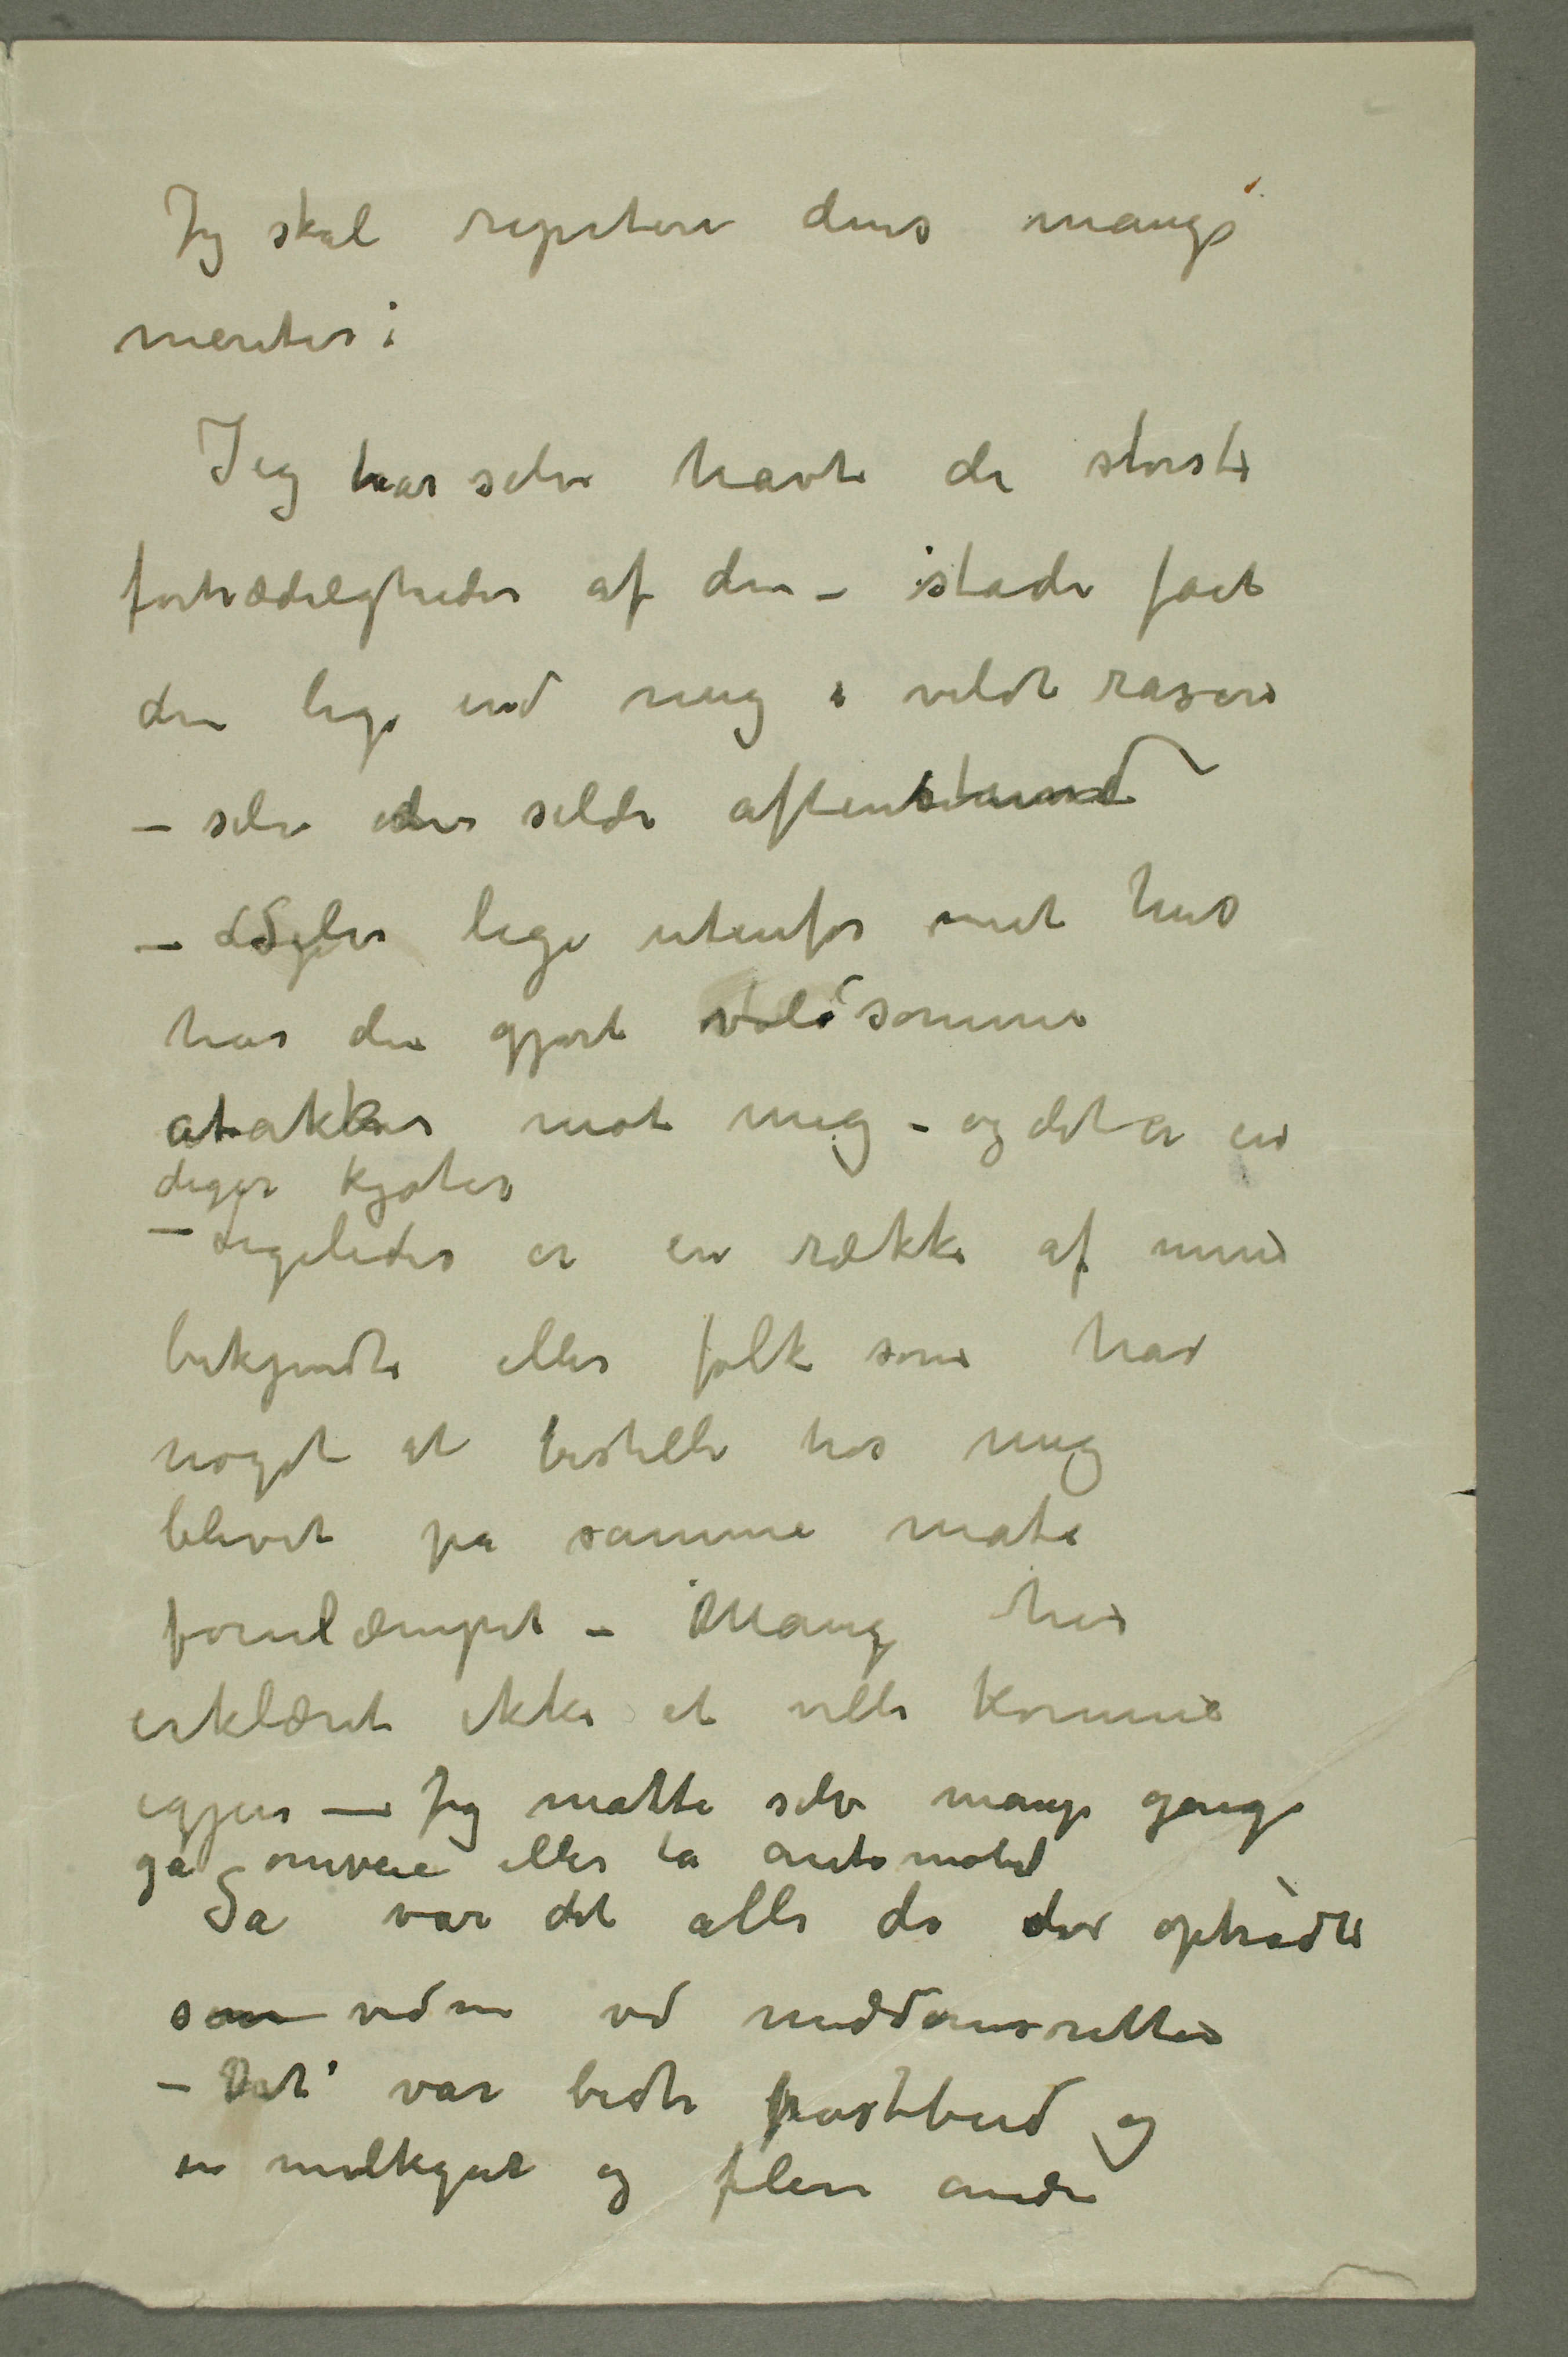 Jeg skal repetere dens mange
meriter:
Jeg har selv havt de største
fortrædeligheder af den – istade faet
den lige ind mig i vildt raseri
– selv den silde aftenstund
– Selv lige utenfor mit hus
har den gjort voldsomme
atakker mot mig – og det er en
diger kjøter
– Ligeledes er en række af mine
bekjendte eller folk som har
noget at bestille hos mig
blevet pa samme mate
forulæmpet – Mange har
erklæret ikke at ville komme
igjen – Jeg matte selv mange gange
ga omveie eller ta automobil
Sa var det alle de der optrådte
som vidne ved meddomsretten
– Det var bådte postbud og
en melkgut og flere andre